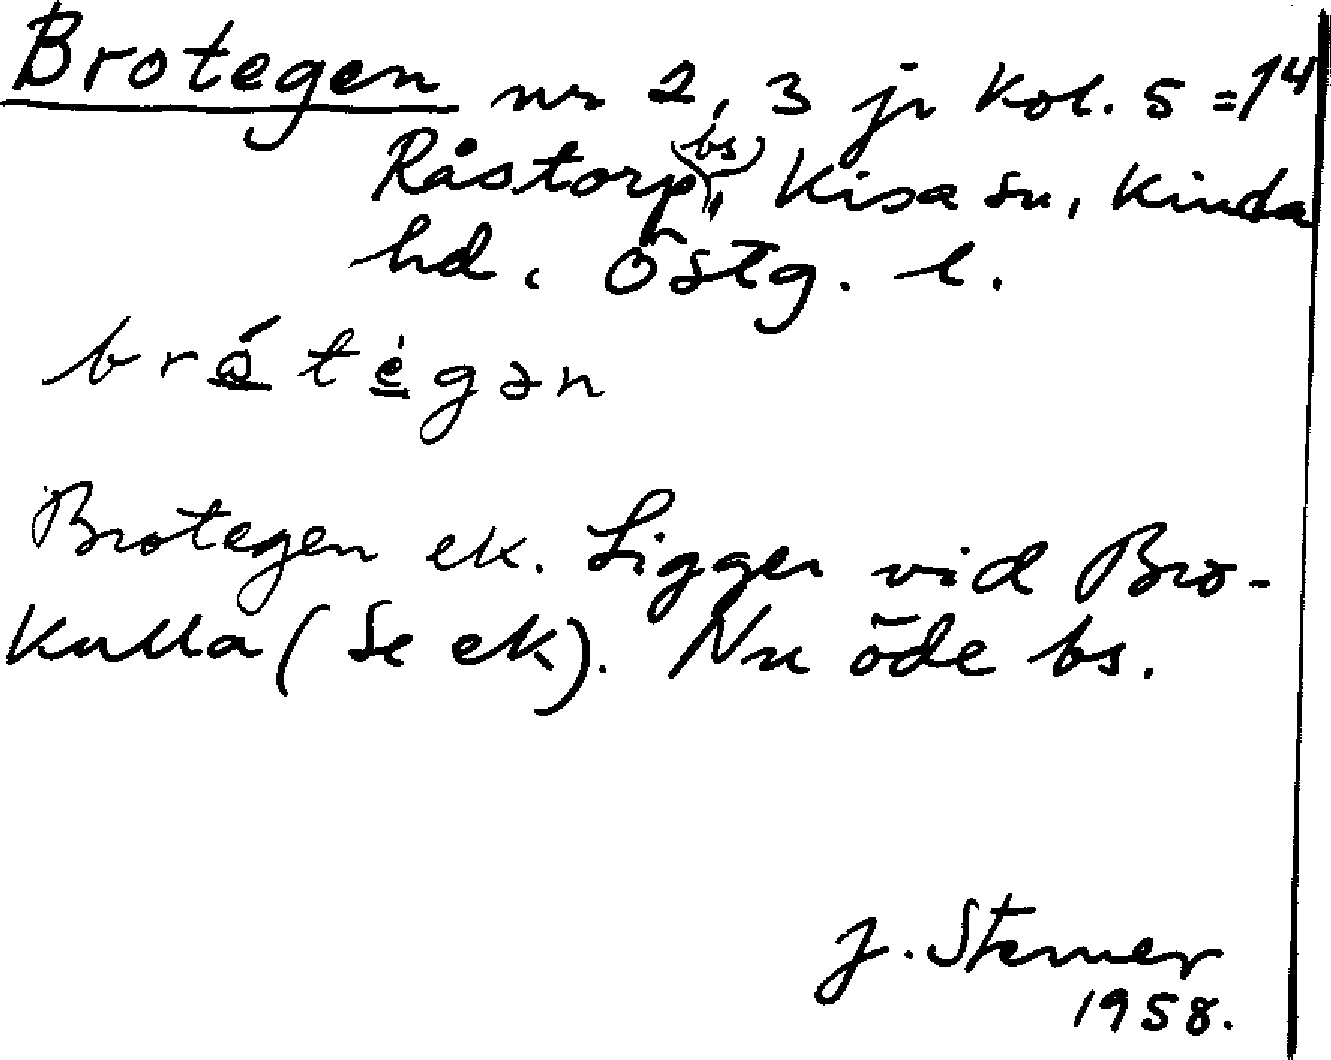 Brotegen nr 2, 3 jr kol. 5 = 14
Råstorp (bs), Kisa sn, Kinda
hd. Östg. l.
brǻtégən
Brotegen ek. Ligger vid Bro-
kulla (Se ek). Nu öde bs.
J. Sterner
1958.